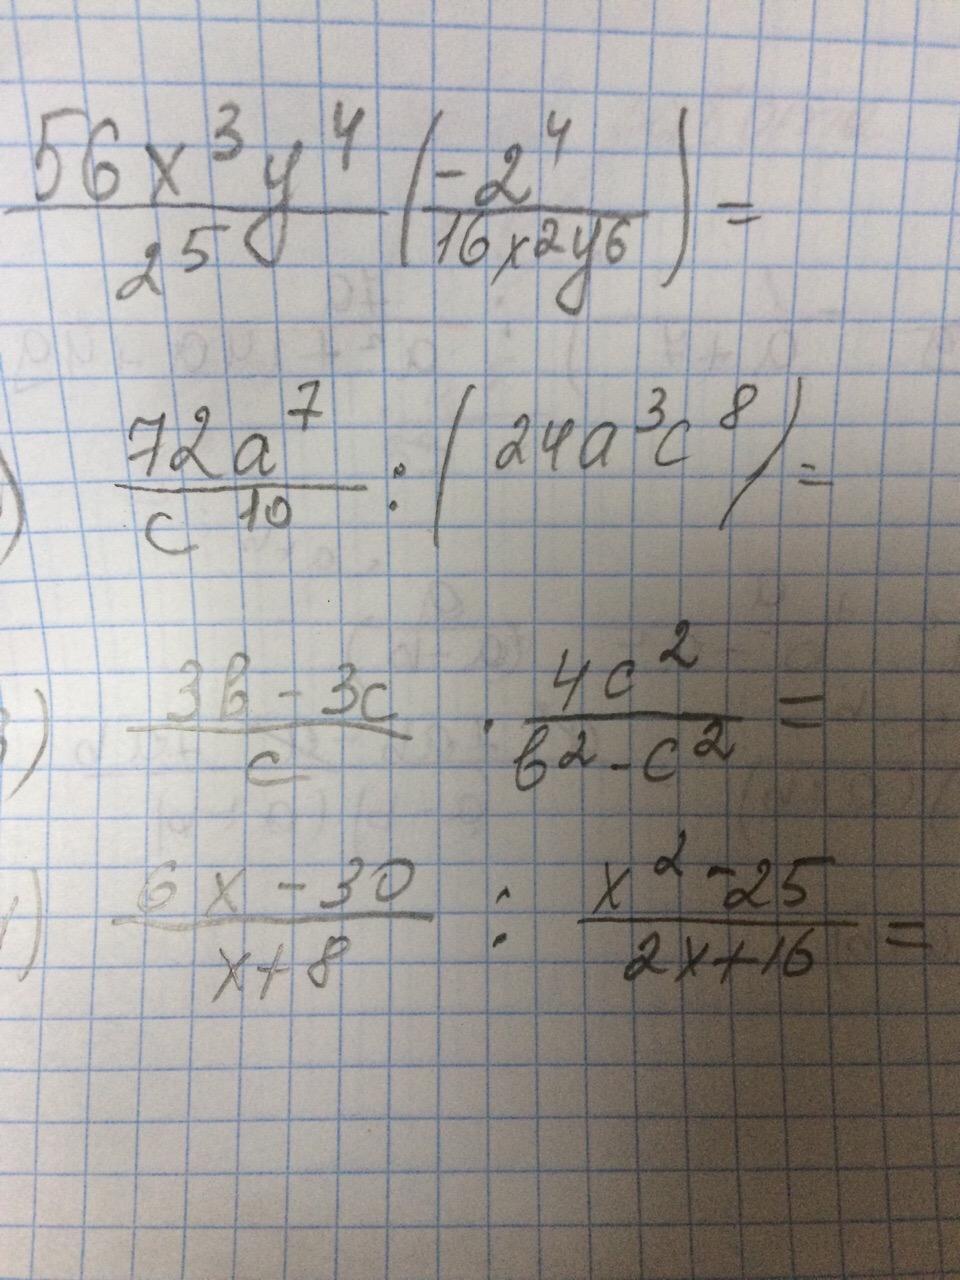 56x³y⁴/2⁵ (-2⁴/16x²y⁶) =
) 72a⁷/c¹⁰ : (24a³c⁸) =
3) 3b - 3c/c · 4c²/b² - c² =
) 6x - 30/x + 8 : x² - 25/2x + 16 =